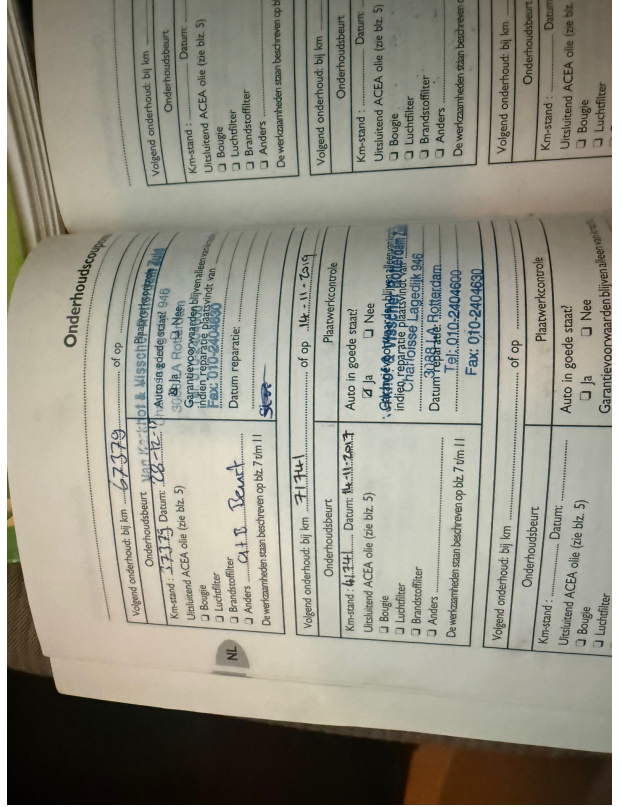 Onderhoudscoupon
Volgend onderhoud: bij km 67379 of op
Onderhoudsbeurt
Plaatwerkcontrole
Km-stand: 37379 Datum:
Uitsluitend ACEA olie (zie blz. 5)
Bougie
Luchtfilter
Brandstoffilter
Anders a+B Beurt
De werkzaamheden staan beschreven op blz. 7 t/m 11
Auto in goede staat?
Ja Nee
Garantievoorwaarden blijven alleen van
indien reparatie plaatsvindt van
Datum reparatie:
Van Kerkhof & Visscher Rotterdam
946
3088 LA Rotterdam
Fax: 010-2404630
NL
Volgend onderhoud: bij km 71741 of op 14-11-2019
Onderhoudsbeurt
Plaatwerkcontrole
Km-stand: 41741 Datum: 14-11-2017
Uitsluitend ACEA olie (zie blz. 5)
Bougie
Luchtfilter
Brandstoffilter
Anders
De werkzaamheden staan beschreven op blz. 7 t/m 11
Auto in goede staat?
Ja Nee
indien reparatie plaatsvindt van
Datum reparatie:
Kerkhof & Visscher Rotterdam
Charloisse Lagedijk 946
3088 LA Rotterdam
Tel: 010-2404600
Fax: 010-2404630
Volgend onderhoud: bij km of op
Onderhoudsbeurt
Plaatwerkcontrole
Km-stand: Datum:
Uitsluitend ACEA olie (zie blz. 5)
Bougie
Luchtfilter
Auto in goede staat?
Ja Nee
Garantievoorwaarden blijven alleen van
Volgend onderhoud: bij km
Onderhoudsbeurt
Km-stand: Datum:
Uitsluitend ACEA olie (zie blz. 5)
Bougie
Luchtfilter
Brandstoffilter
Anders
De werkzaamheden staan beschreven op bl
Volgend onderhoud: bij km
Onderhoudsbeurt
Km-stand: Datum:
Uitsluitend ACEA olie (zie blz. 5)
Bougie
Luchtfilter
Brandstoffilter
Anders
De werkzaamheden staan beschreven
Volgend onderhoud: bij km
Onderhoudsbeurt
Km-stand: Datum
Uitsluitend ACEA olie (zie blz.
Bougie
Luchtfilter